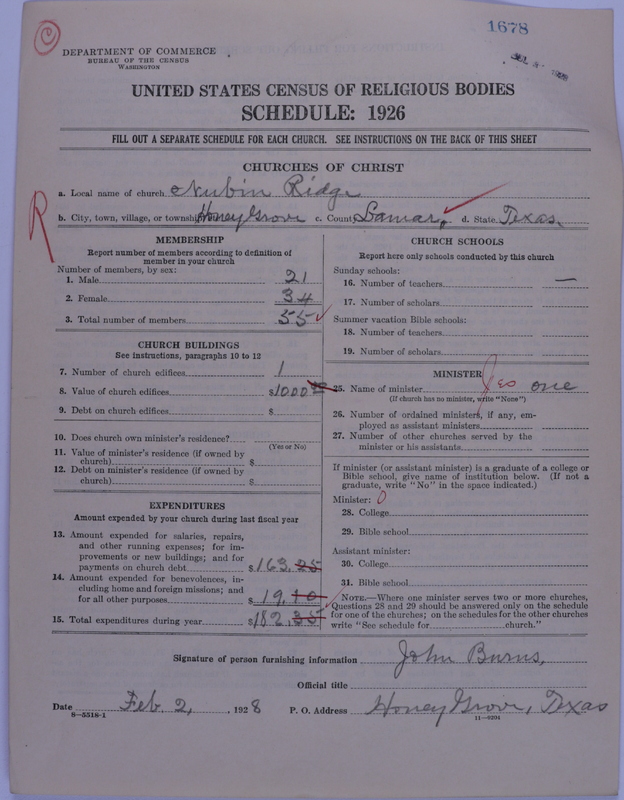 1678
DEPARTMENT OF COMMERCE
BUREAU OF THE CENSUS
WASHINGTON
UNITED STATES CENSUS OF RELIGIOUS BODIES
SCHEDULE: 1926
FILL OUT A SEPARATE SCHEDULE FOR EACH CHURCH. SEE INSTRUCTIONS ON THE BACK OF THIS SHEET
CHURCHES OF CHRIST
a. Local name of church. Nubin Ridge
b. City, town, village, or township Honey Grove c. County Lamar, d. State Texas.
R
MEMBERSHIP
Report number of members according to definition of
member in your church
Number of members, by sex:
1. Male 21
2. Female 34
3. Total number of members 55
CHURCH BUILDINGS
See instructions, paragraphs 10 to 12
7. Number of church edifices 1
8. Value of church edifices $1000
9. Debt on church edifices $
10. Does church own minister's residence?
(Yes or No)
11. Value of minister's residence (if owned by
church) $
12. Debt on minister's residence (if owned by
church) $
EXPENDITURES
Amount expended by your church during last fiscal year
13. Amount expended for salaries, repairs,
and other running expenses; for im-
provements or new buildings; and for
payments on church debt $163.25
14. Amount expended for benevolences, in-
cluding home and foreign missions; and
for all other purposes $19.10
15. Total expenditures during year $182.35
CHURCH SCHOOLS
Report here only schools conducted by this church
Sunday schools:
16. Number of teachers —
17. Number of scholars
Summer vacation Bible schools:
18. Number of teachers
19. Number of scholars
MINISTER
25. Name of minister Yes one
(If church has no minister, write "None")
26. Number of ordained ministers, if any, em-
ployed as assistant ministers
27. Number of other churches served by the
minister or his assistants
If minister (or assistant minister) is a graduate of a college or
Bible school, give name of institution below. (If not a
graduate, write "No" in the space indicated.)
Minister: 0
28. College
29. Bible school
Assistant minister:
30. College
31. Bible school
NOTE.—Where one minister serves two or more churches,
Questions 28 and 29 should be answered only on the schedule
for one of the churches; on the schedules for the other churches
write "See schedule for church."
Signature of person furnishing information John Burns,
Official title
Date Feb. 2, , 1928 P. O. Address Honey Grove, Texas
8—5518-1 11—9204